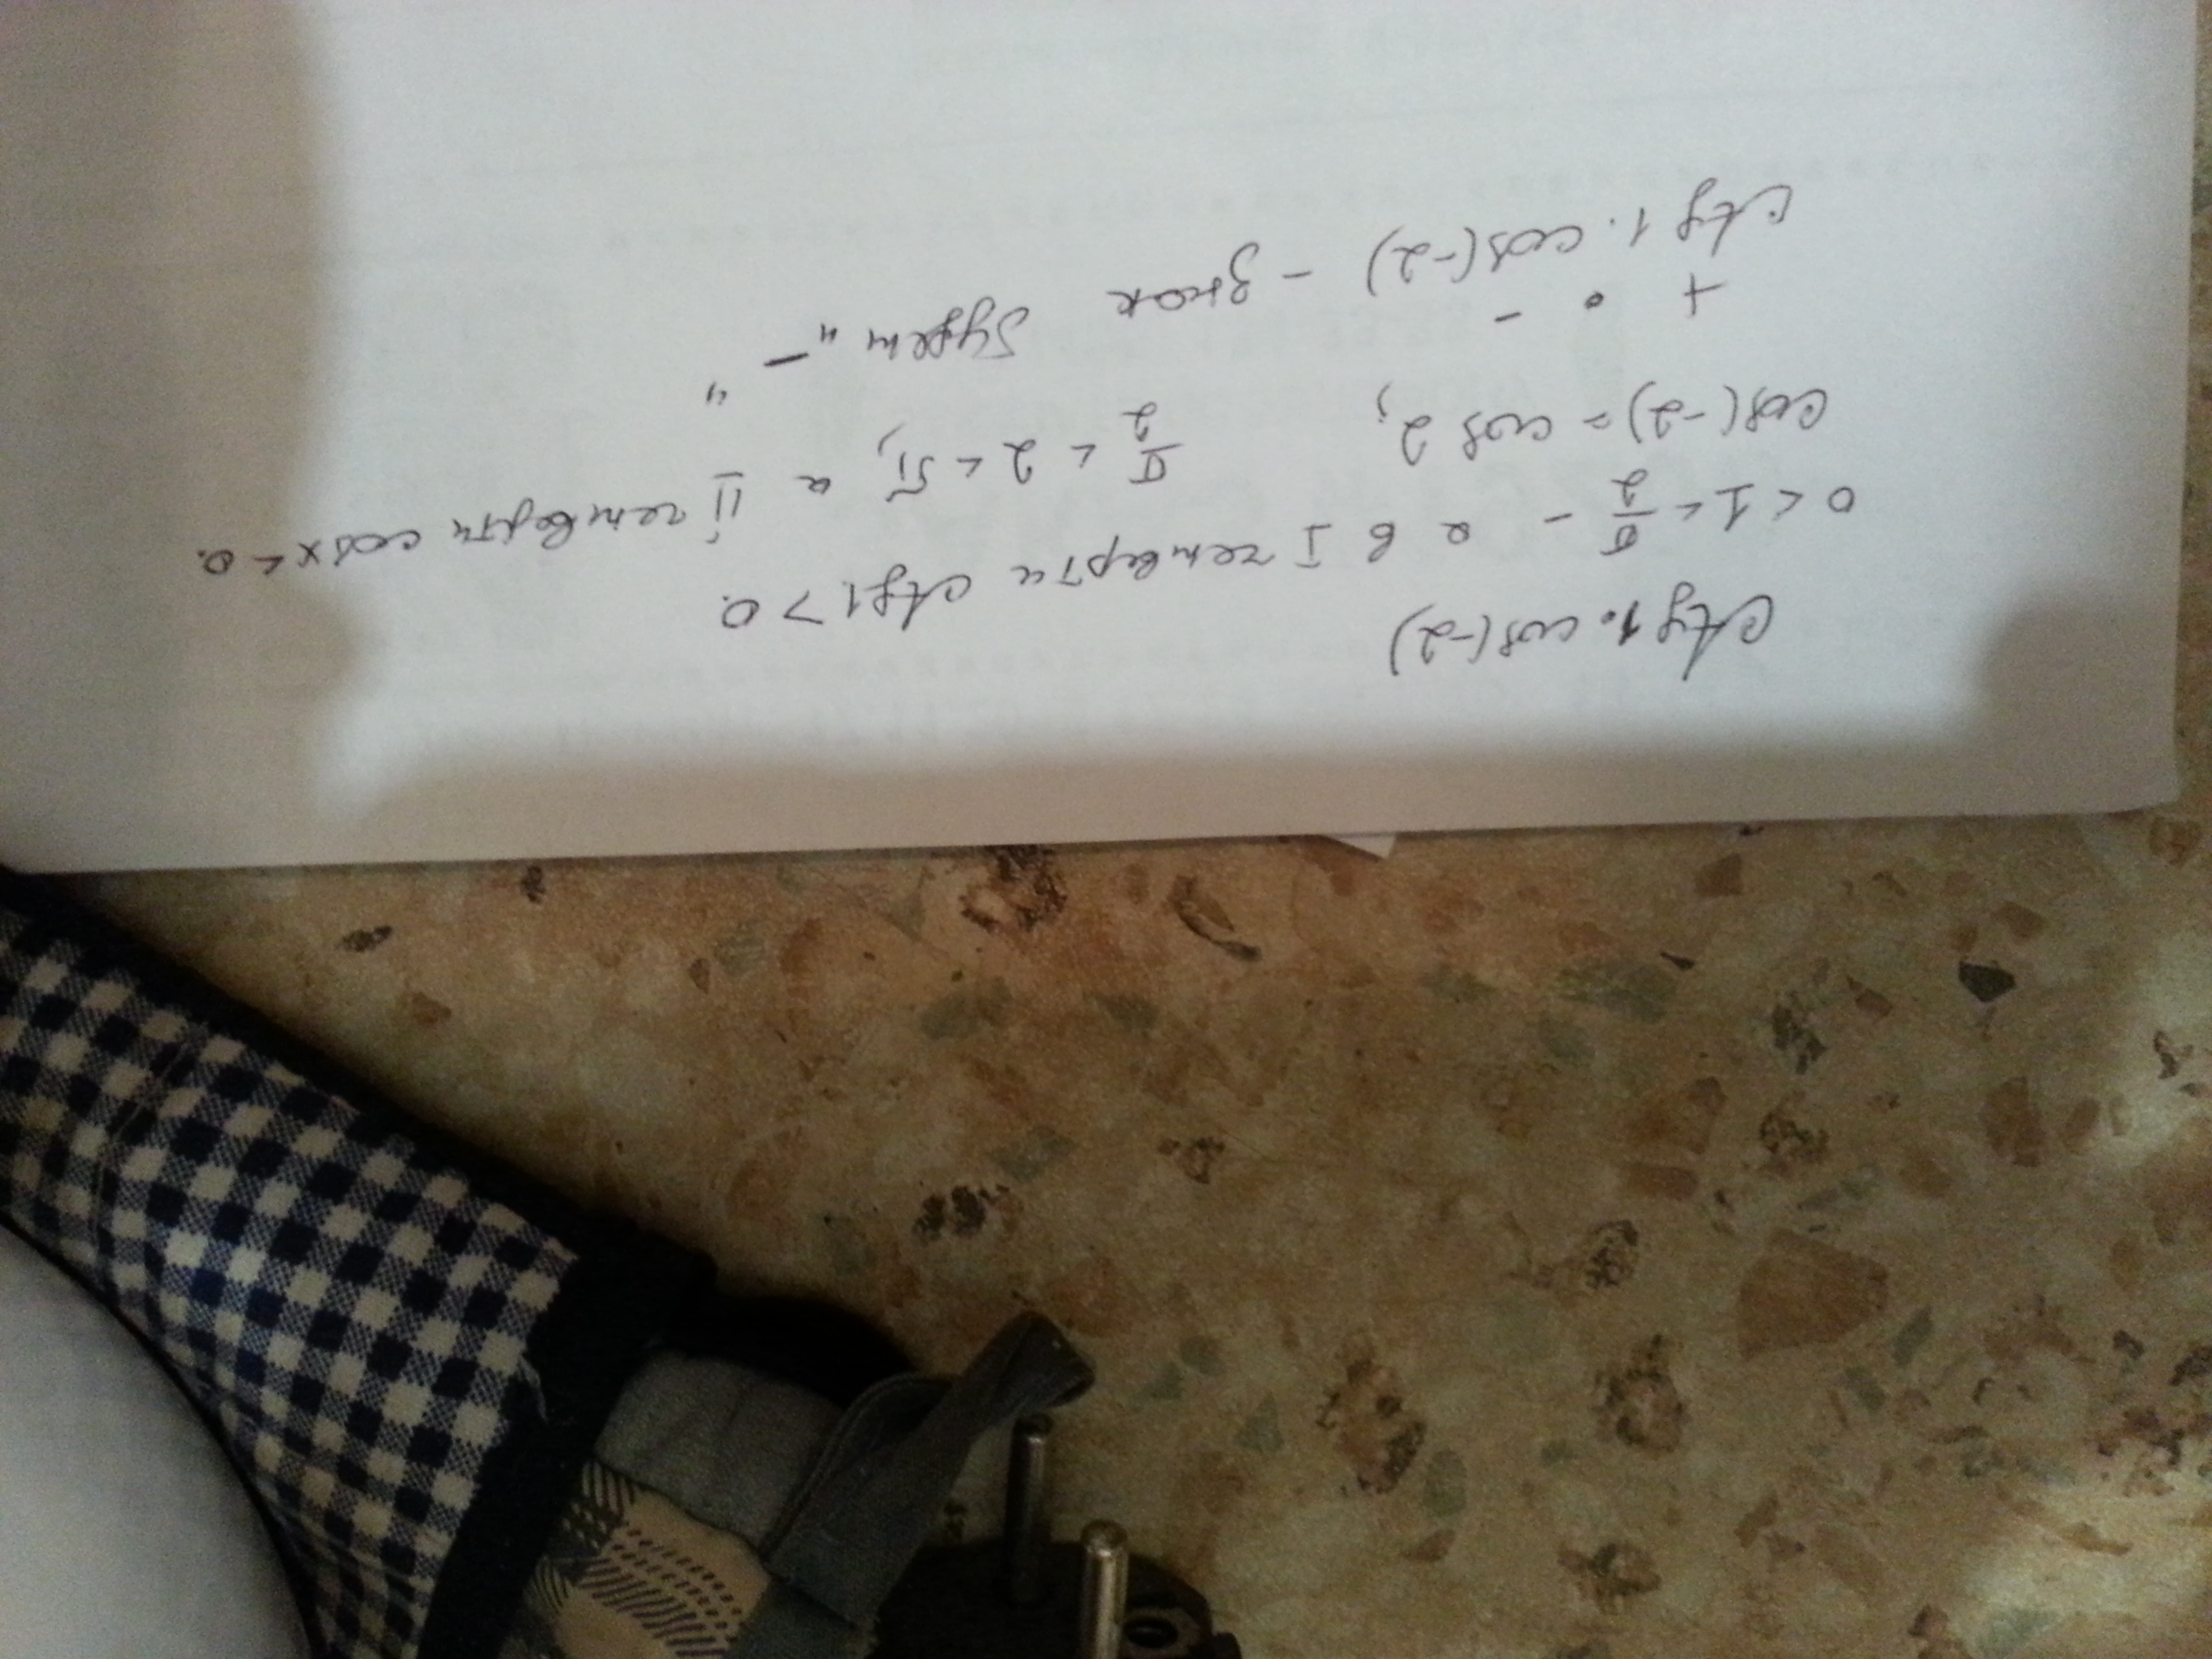 ctg 1 · cos(-2)
0 < 1 < π/2 - а в I четверти ctg 1 > 0.
cos(-2) = cos 2; π/2 < 2 < π, а II четверти cos x < 0.
+ · -
ctg 1 · cos(-2) - знак будет "-"